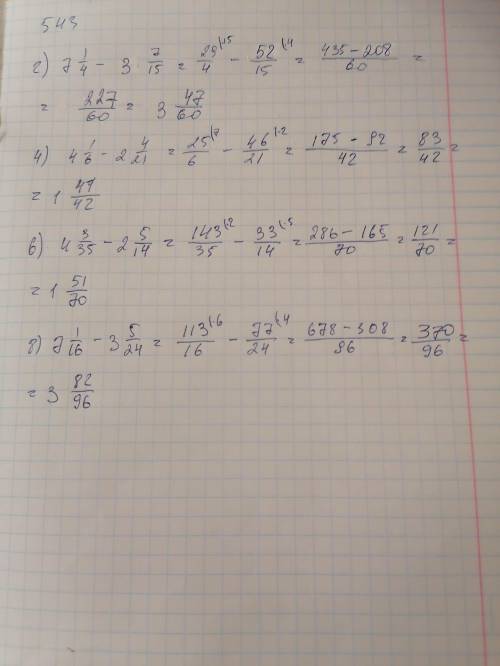 543
2) 7 1/4 - 3 7/15 = 29/4 \·15 - 52/15 \·4 = 435-208/60 =
= 227/60 = 3 47/60
4) 4 1/6 - 2 4/21 = 25/6 \·7 - 46/21 \·2 = 175-92/42 = 83/42 =
= 1 41/42
6) 4 3/35 - 2 5/14 = 143/35 \·2 - 33/14 \·5 = 286-165/70 = 121/70 =
= 1 51/70
8) 7 1/16 - 3 5/24 = 113/16 \·6 - 77/24 \·4 = 678-308/96 = 370/96 =
= 3 82/96